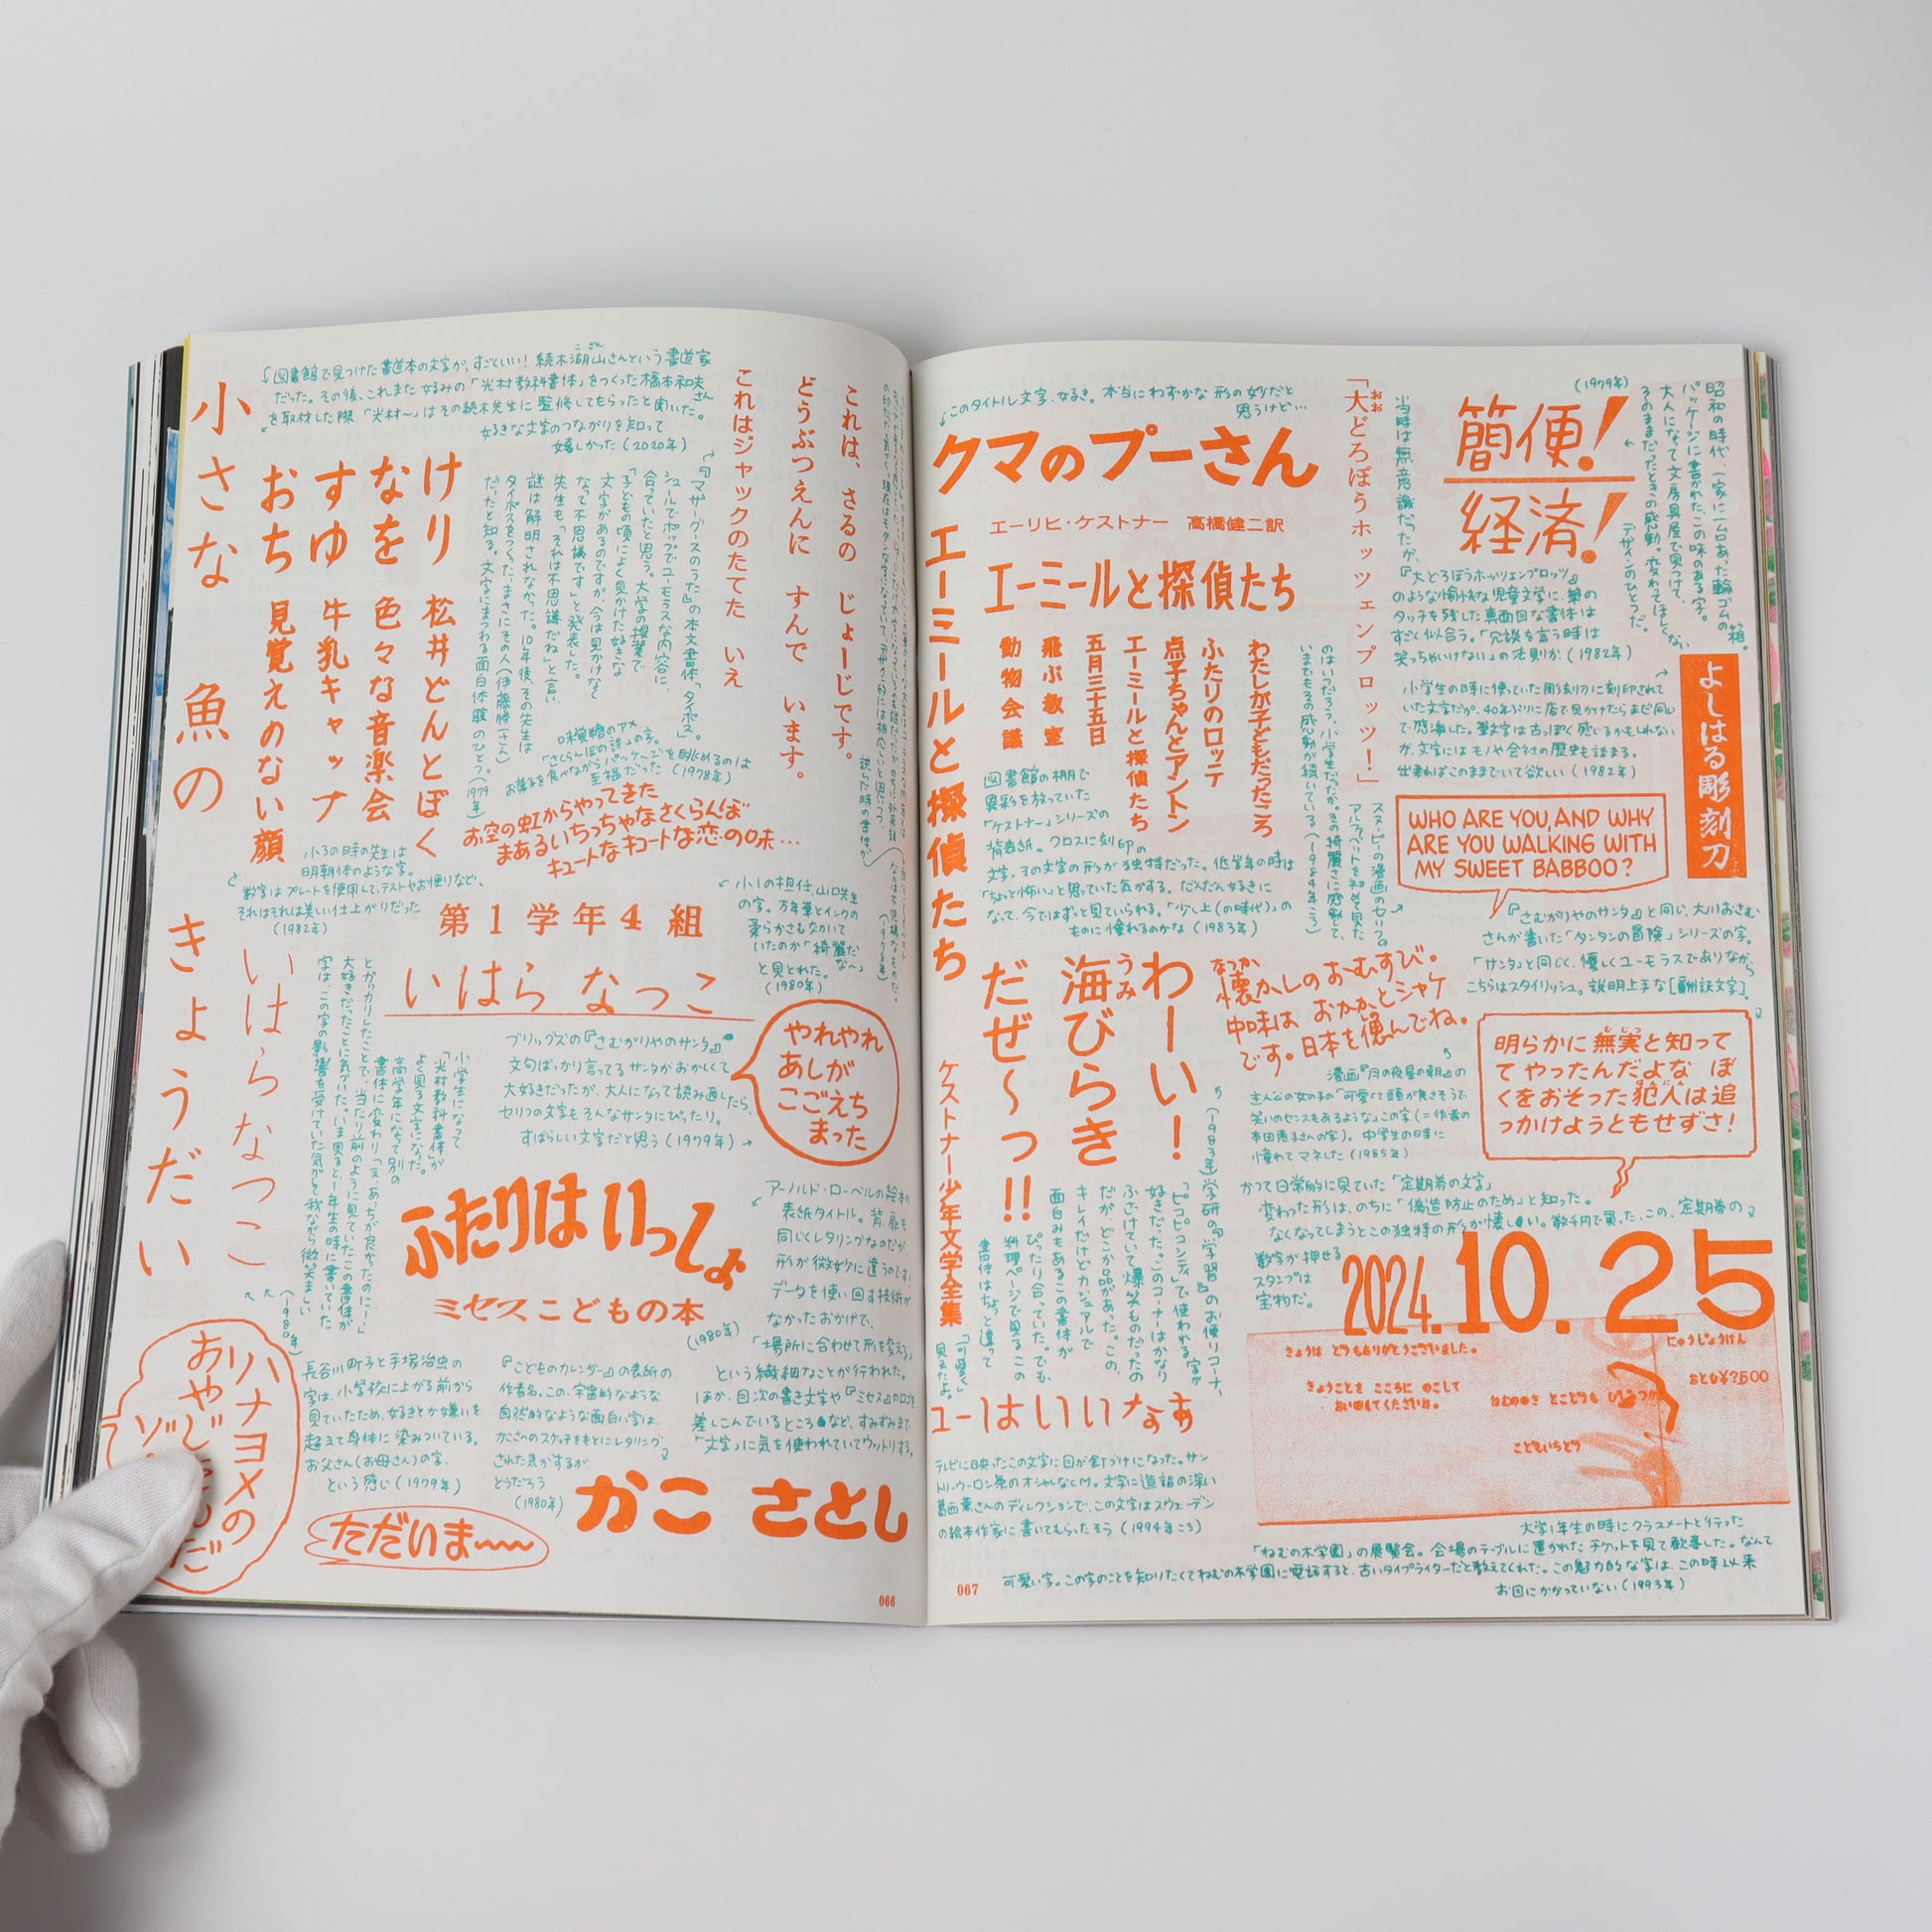 図書館で見つけた書道本の文字が、すごくいい！続木湖山さんという書道家
こざん
だった。その後、これまた好みの「光村教科書体」をつくった橋本和夫さん
を取材した際「光村〜」はその続木先生に監修してもらったと聞いた。
好きな文字のつながりを知って
嬉しかった（2020年）
小さな 魚の きょうだい
けり 松井どんとぼく
なを 色々な音楽会
すゆ 牛乳キャップ
おち 見覚えのない顔
これは、さるの じょーじです。
どうぶつえんに すんで います。
これはジャックのたてた いえ
『マザーグースのうた』の本文書体「タイポス」。
シュールでポップでユーモラスな内容に、
合っていたと思う。大学の授業で
「子どもの頃によく見かけた好きな
文字があるのですが、今は見かけなく
なって不思議です」と発表した。
先生も「それは不思議だね」と言い、
謎は解明されなかった。10年後、その先生は
タイポスをつくった、まさにその人（伊藤勝一さん）
だったと知る。文字にまつわる面白体験のひとつ。（1979年）
味覚糖のアメ
「さくらんぼの詩」の字。
お菓子を食べながらパッケージを眺めるのは
至福だった（1978年）
お空の虹からやってきた
まあるいちっちゃなさくらんぼ
キュートなキュートな恋の味…
小3の時の先生は
明朝体のような字。
数字はプレートを使用して、テストやお便りなど、
それはそれは美しい仕上がりだった
（1982年）
第1学年4組
いはら なつこ
小1の担任、山口先生
の字。万年筆とインクの
柔らかさも効いて
いたのか「綺麗だな〜」
と見とれた。
（1980年）
いはらなつこ
小学生になって
「光村教科書体」が
よく見る文字になった。
高学年になって別の
書体に変わり「え、あっちが良かったのにー！」
とがっかりしたことで、当たり前のように見ていたこの書体が
大好きだったことに気づいた。いま見ると1年生の時に書いていた
字は、この字の影響を受けていた気がして我ながら微笑ましい
（1980年）
ブリッグズの『さむがりやのサンタ』
文句ばっかり言ってるサンタがおかしくて
大好きだったが、大人になって読み直したら、
セリフの文字もそんなサンタにぴったり。
すばらしい文字だと思う（1979年）
やれやれ
あしが
こごえち
まった
ふたりは いっしょ
ミセスこどもの本
アーノルド・ローベルの絵本の
表紙タイトル。背、扉も
同じレタリングなのだが
形が微妙に違うのです！
データを使い回す技術が
なかったおかげで、
「場所に合わせて形を変える」
（1980年）
という繊細なことが行われた。
ほか、目次の書き文字や『ミセス』のロゴを
差しこんでいるところなど、すみずみまで
「文字」に気を使われていてウットリする。
ハナヨメの
おやじ
長谷川町子と手塚治虫の
字は、小学校に上がる前から
見ていたため、好きとか嫌いを
超えて身体に染みついている。
お父さん（お母さん）の字、
という感じ（1979年）
ただいま〜〜
『こどものカレンダー』の表紙の
作者名。この、宇宙的なような
自然的なような面白い字は、
かこさんのスケッチをもとにレタリング
された気がするが、
どうだろう
（1980年）
かこ さとし
066
このタイトル文字、好き。本当にわずかな形の妙だと
思うけど…
クマのプーさん
エーリヒ・ケストナー 高橋健二訳
エーミールと探偵たち
エーミールと探偵たち
ケストナー少年文学全集
わたしが子どもだったころ
ふたりのロッテ
点子ちゃんとアントン
エーミールと探偵たち
五月三十五日
飛ぶ教室
動物会議
図書館の棚で
異彩を放っていた
「ケストナー」シリーズの
背表紙。クロスに刻印の
文字。その文字の形が独特だった。低学年の時は
「ちょっと怖い」と思っていた気がする。だんだん好きに
なって、今ではずっと見ていられる。「少し上（の時代）」の
ものに憧れるのかな（1983年）
「大どろぼうホッツェンプロッツ！」
おお
簡便！
経済！
（1979年）
昭和の時代、一家に一台あった輪ゴムの箱。
パッケージに書かれた、この味のある字。
大人になって文房具屋で見つけて、
そのままだったときの感動。変わってほしくない
「デザインのひとつ」だ。
当時は無意識だったが、
『大どろぼうホッツェンプロッツ』
のような愉快な児童文学に、筆の
タッチを残した真面目な書体は
すごく似合う。「冗談を言う時は
笑っちゃいけない」の法則か（1982年）
よしはる彫刻刀
小学生の時に使っていた彫刻刀に刻印されて
いた文字だが、40年ぶりに店で見かけたらまだ同じ
で感激した。筆文字は古っぽく感じるかもしれない
が、文字にはモノや会社の歴史も詰まる。
出来ればこのままでいて欲しい（1982年）
WHO ARE YOU, AND WHY
ARE YOU WALKING WITH
MY SWEET BABBOO?
スヌーピーの漫画のセリフの
アルファベットを初めて見た
のはいつだろう。小学生だったか。その綺麗さに感動して、
いまでもその感動が続いている（1984年ごろ）
『さむがりやのサンタ』と同じ、大川おさむ
さんが書いた「タンタンの冒険」シリーズの字。
「サンタ」と同じく、優しくユーモラスでありながら
こちらはスタイリッシュ。説明上手な［翻訳文字］。
明らかに無実と知って
てやったんだよな ぼ
くをおそった犯人は追
っかけようともせずさ！
むじつ
はんにん
わーい！
海びらき
うみ
だぜ〜っ！！
懐かしのおーむすび。
なつか
中味は おかかとシャケ
です。日本を偲んでね。
漫画『月の夜星の朝』の
主人公の女の子の「可愛くて頭が良さそうで
笑いのセンスもあるような」この字（＝作者の
本田恵子さんの字）。中学生の時に
憧れてマネした（1985年）
（1983年）学研の『学習』のお便りコーナー、
「ピコピコンティ」で使われる字が
好きだった。このコーナーはかなり
ふざけていて爆笑ものだったの
だが、どこか品があった。この、
キレイだけどカジュアルで
面白みもあるこの書体が
ぴったり合っていた。でも、
料理ページで見るこの
書体はちょっと違って
「可愛く」
見えたよ。
かつて日常的に見ていた「定期券の文字」
変わった形は、のちに「偽造防止のため」と知った。
なくなってしまうとこの独特の形が懐しい。数千円で買った、この、定期券の
数字が押せる
スタンプは
宝物だ。
2024.10.25
きょうは どうもありがとうございました。
にゅうじょうけん
きょうことを こころに のこして
おいてくださいね。
おとな¥500
ねむのき
こどもいちどう
ユーはいいなぁ
テレビに映ったこの文字に目が釘づけになった。サン
トリーウーロン茶のオシャレなCM。文字に造詣の深い
葛西薫さんのディレクションで、この文字はスウェーデン
の絵本作家に書いてもらったそう（1994年ごろ）
大学1年生の時にクラスメートと行った
「ねむの木学園」の展覧会。会場のテーブルに置かれたチケットを見て歓喜した。なんて
可愛い字。この字のことを知りたくてねむの木学園に電話すると、古いタイプライターだと教えてくれた。この魅力的な字は、この時以来
お目にかかっていない（1993年）
067